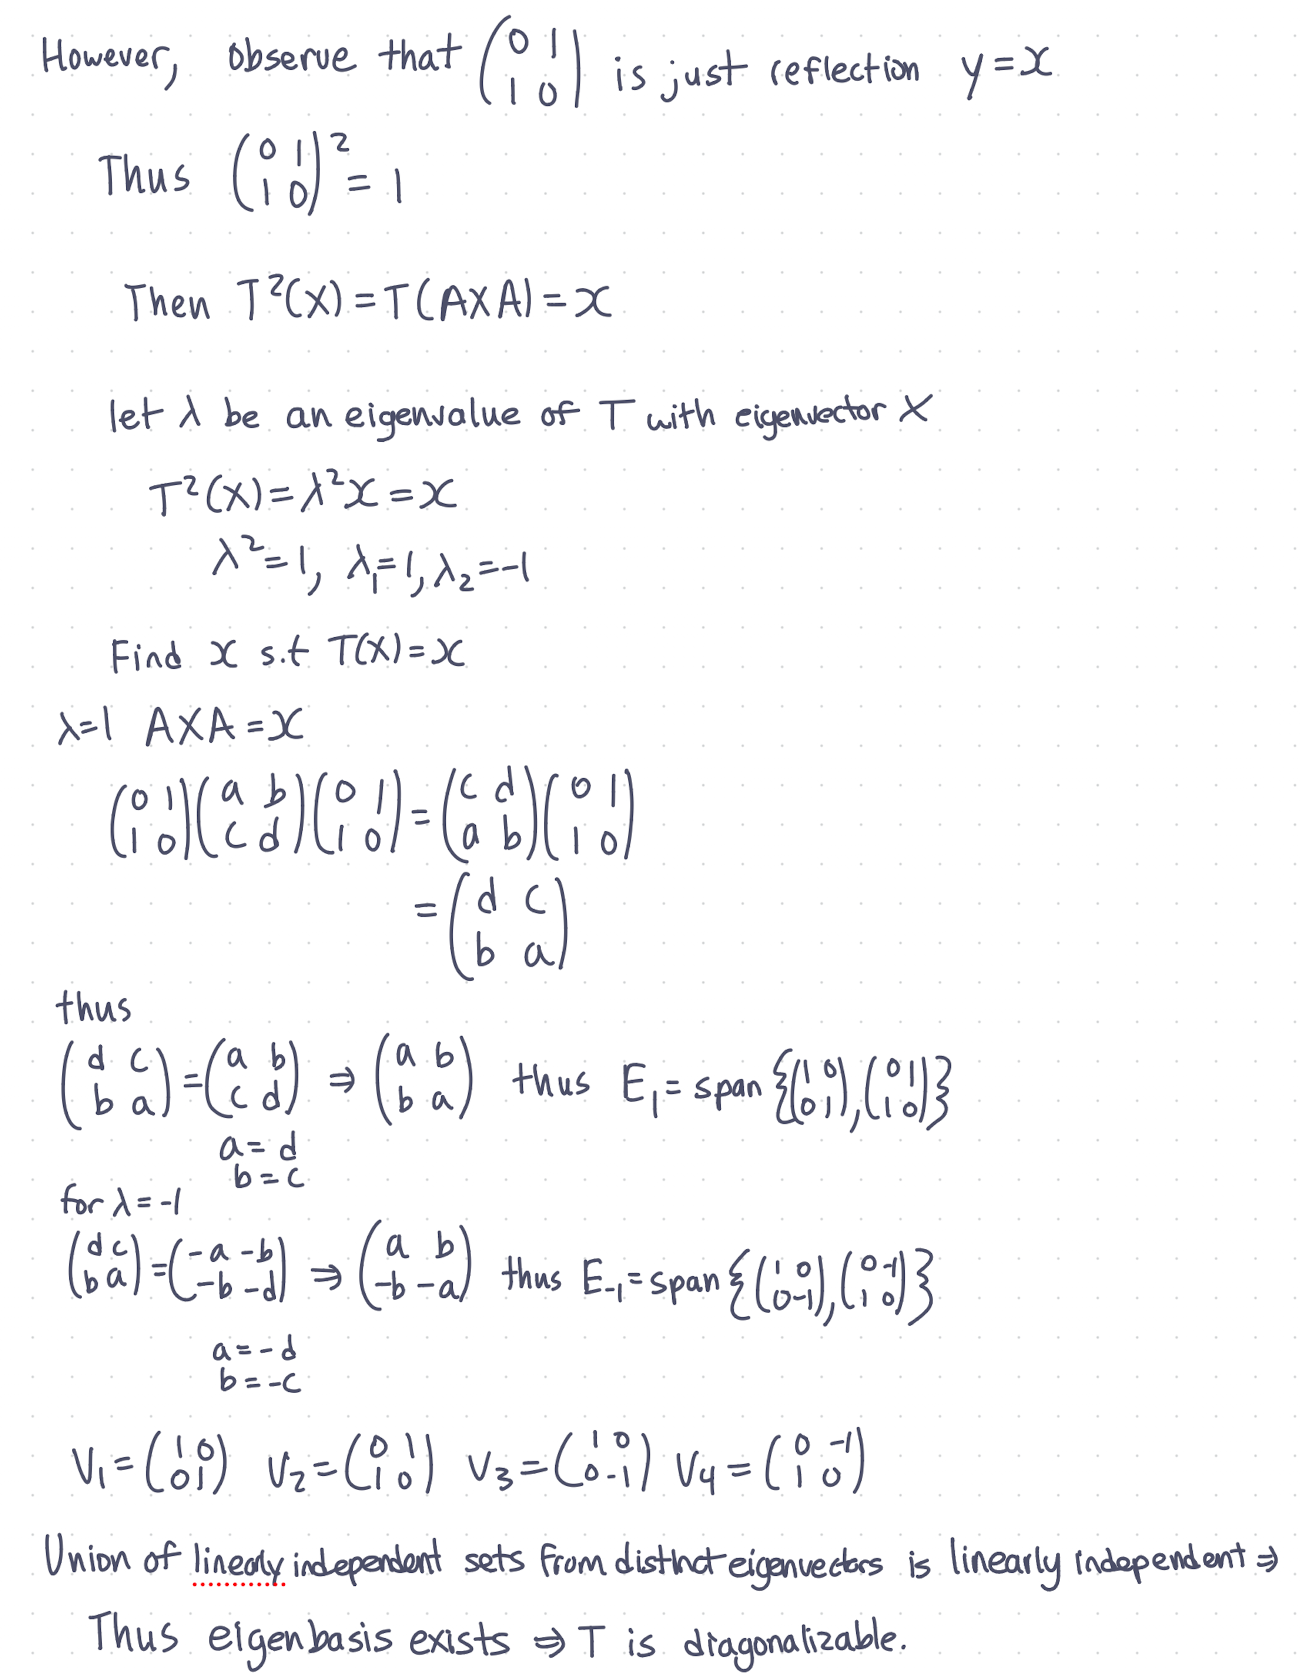 However, observe that (0 1; 1 0) is just reflection y=x
Thus (0 1; 1 0)² = 1
Then T²(X) = T(AXA) = x
let λ be an eigenvalue of T with eigenvector X
T²(X) = λ²x = x
λ² = 1, λ₁ = 1, λ₂ = -1
Find x s.t T(X) = x
λ=1 AXA = x
(0 1; 1 0)(a b; c d)(0 1; 1 0) = (c d; a b)(0 1; 1 0)
= (d c; b a)
thus
(d c; b a) = (a b; c d) ⇒ (a b; b a) thus E₁ = span {(1 0; 0 1), (0 1; 1 0)}
a = d
b = c
for λ = -1
(d c; b a) = (-a -b; -b -d) ⇒ (a b; -b -a) thus E₋₁ = span {(1 0; 0 -1), (0 -1; 1 0)}
a = -d
b = -c
V₁ = (1 0; 0 1) V₂ = (0 1; 1 0) V₃ = (1 0; 0 -1) V₄ = (0 -1; 1 0)
Union of linearly independent sets from distinct eigenvectors is linearly independent ⇒
Thus eigenbasis exists ⇒ T is diagonalizable.